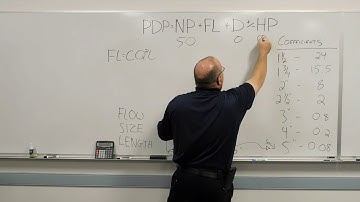 PDP=NP+FL+D±HP
50 0
FL=CQ²L
Coefficients
1½ - 24
1¾ - 15.5
2" - 8
2½ - 2
3" - 0.8
4" - 0.2
5" - 0.08
FLOW
SIZE
LENGTH